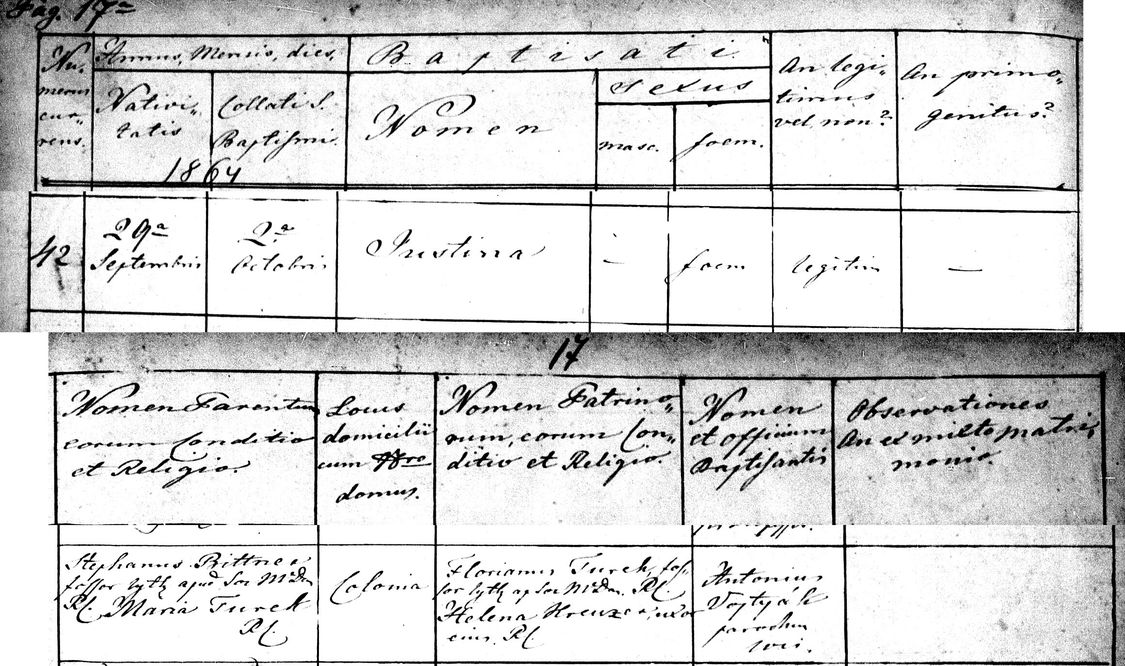 Pag. 17ª
Nu-
merus
cur-
rens.
Annus, Mensis, dies,
Nativi-
tatis
Collati S.
Baptismi.
1864
Baptisati
Nomen
Sexus
masc.
foem.
An legi-
timus
vel non?
An primo-
genitus?
42
29ª
Septembris
2ª
Octobris
Justina
—
foem
legitim
—
17
Nomen Parentum
eorum Conditio
et Religio.
Locus
domicilii
cum Nro
domus.
Nomen Patrino-
rum, eorum Con-
ditio et Religio.
Nomen
et officium
Baptisantis
Observationes
An ex mixto matri-
monio.
Stephanus Bittner
fossor lyth apud
R.C. Maria Turek
R.C.
Colonia
Florianus Turek, fos-
sor lyth R.C.
Helena Kreuzer, uxor
eius, R.C.
Antonius
Vojtyáh
parochus
loci.